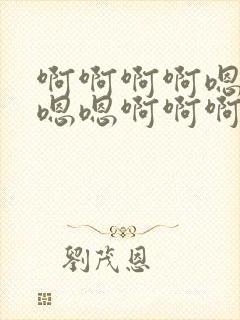 啊啊啊啊嗯
嗯嗯啊啊啊
劉茂恩